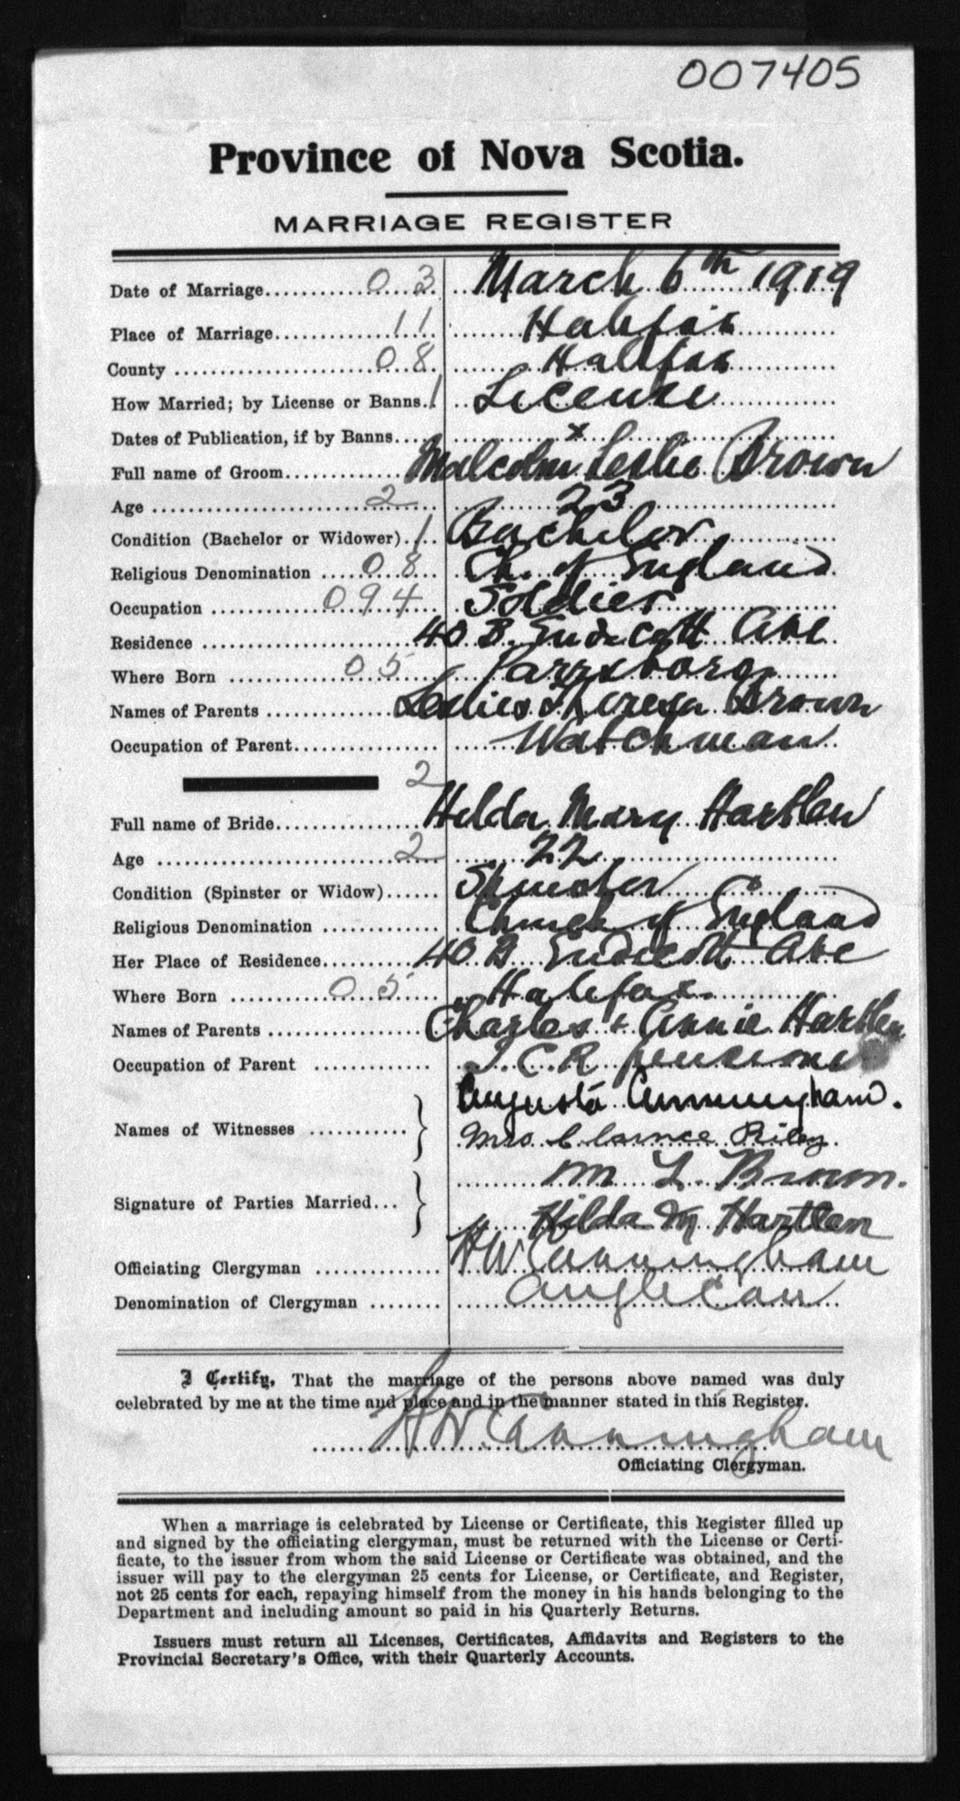 007405
Province of Nova Scotia.
MARRIAGE REGISTER
Date of Marriage 03 March 6th 1919
Place of Marriage 11 Halifax
County 08 Halifax
How Married; by License or Banns 1 License
Dates of Publication, if by Banns x
Full name of Groom Malcolm Leslie Brown
Age 2 23
Condition (Bachelor or Widower) 1 Bachelor
Religious Denomination 08 Ch. of England
Occupation 094 Soldier
Residence 40 B. Endicott Ave
Where Born 05 Parrsboro
Names of Parents Theresa Brown
Occupation of Parent Watchman
2
Full name of Bride Hilda Mary Hartlen
Age 2 22
Condition (Spinster or Widow) Spinster
Religious Denomination Church of England
Her Place of Residence 40 B Endicott Ave
Where Born 05 Halifax.
Names of Parents Charles + Annie Hartlen
Occupation of Parent I.C.R.
Names of Witnesses Augusta Cunningham.
Mrs Clarence Riley.
Signature of Parties Married M L. Brown.
Hilda M Hartlen
Officiating Clergyman HW Cunningham
Denomination of Clergyman Anglican
I Certify, That the marriage of the persons above named was duly
celebrated by me at the time and place and in the manner stated in this Register.
HW Cunningham
Officiating Clergyman.
When a marriage is celebrated by License or Certificate, this Register filled up
and signed by the officiating clergyman, must be returned with the License or Certi-
ficate, to the issuer from whom the said License or Certificate was obtained, and the
issuer will pay to the clergyman 25 cents for License, or Certificate, and Register,
not 25 cents for each, repaying himself from the money in his hands belonging to the
Department and including amount so paid in his Quarterly Returns.
Issuers must return all Licenses, Certificates, Affidavits and Registers to the
Provincial Secretary's Office, with their Quarterly Accounts.